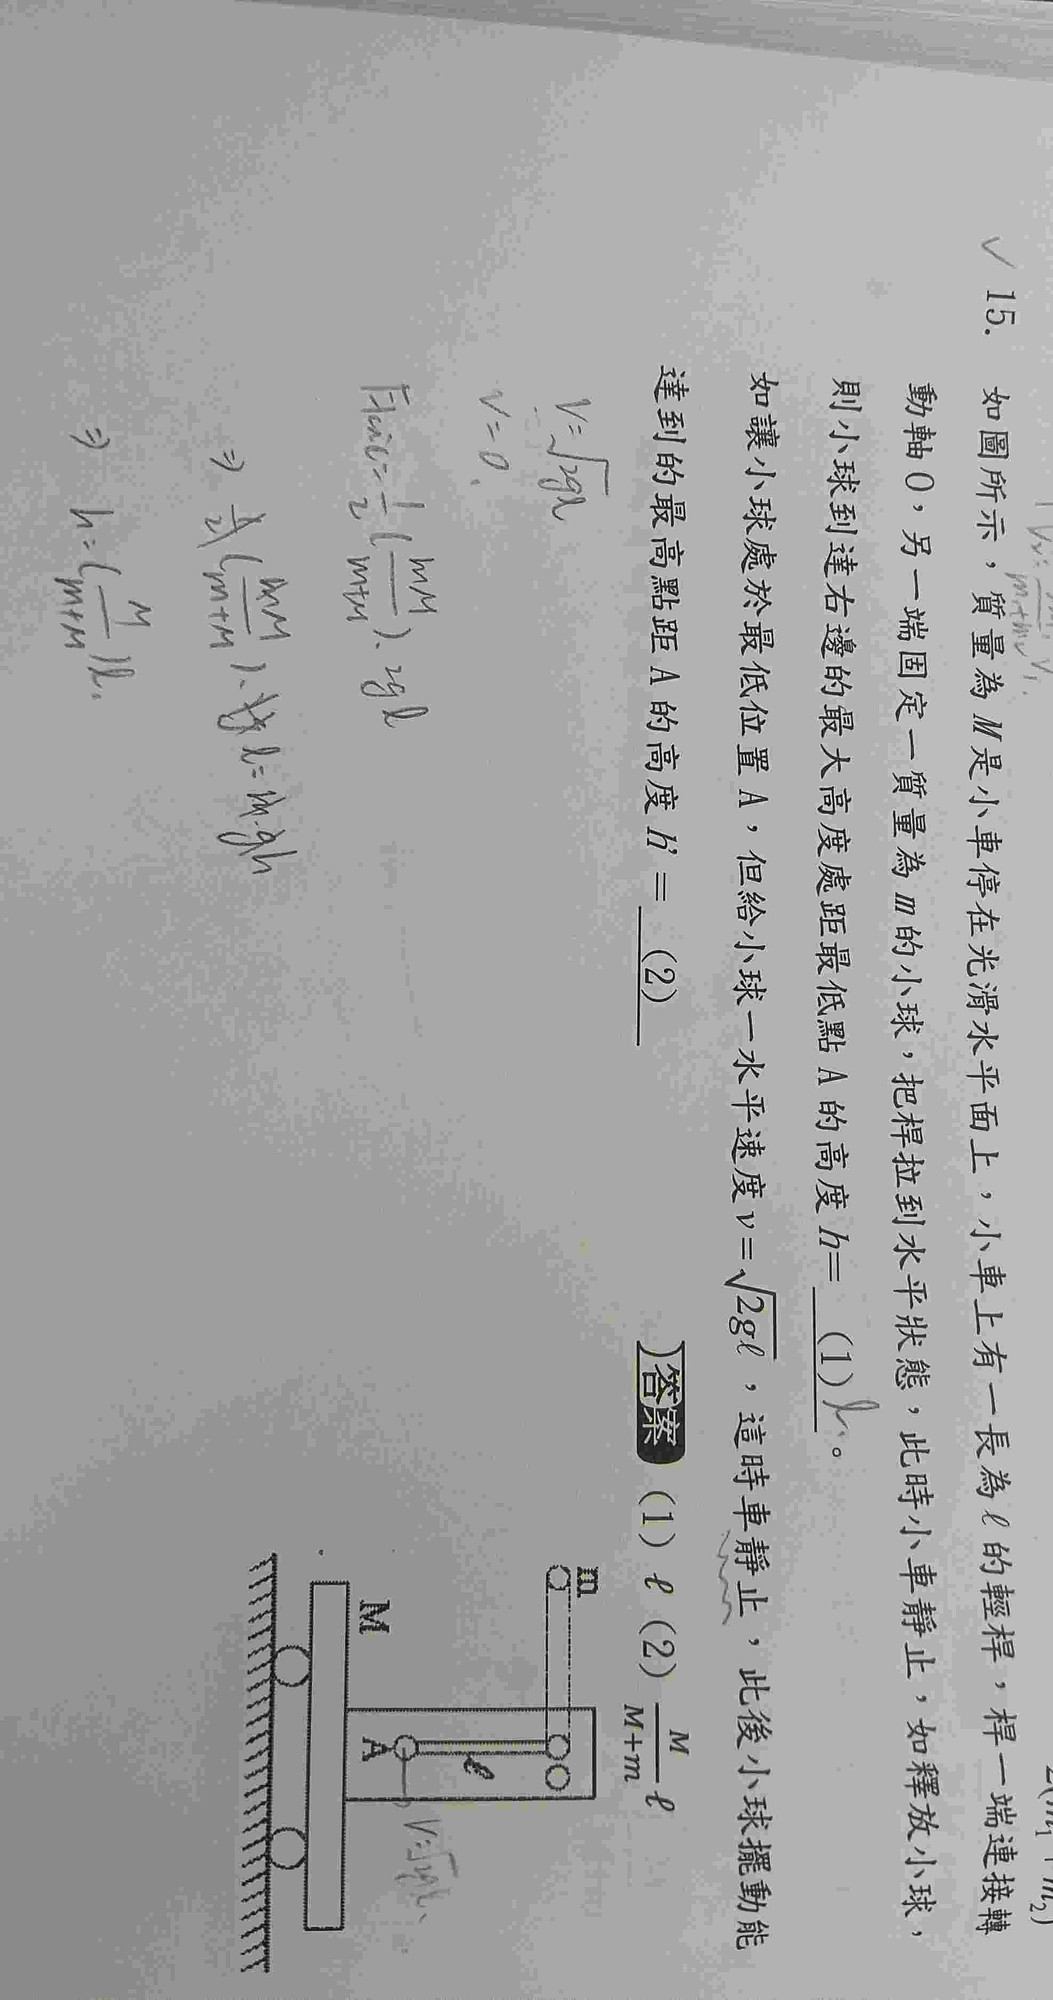 ✓ 15. 如圖所示，質量為 M 是小車停在光滑水平面上，小車上有一長為 ℓ 的輕桿，桿一端連接轉
動軸 O，另一端固定一質量為 m 的小球，把桿拉到水平狀態，此時小車靜止，如釋放小球，
則小球到達右邊的最大高度處距最低點 A 的高度 h= (1) 。
如讓小球處於最低位置 A，但給小球一水平速度 v=√2gℓ，這時車靜止，此後小球擺動能
達到的最高點距 A 的高度 h' = (2)
答案 (1) ℓ (2) M/(M+m) ℓ
m
ℓ
A
M
V=√2gl
V=0.
= 1/2 (mM/(m+M)) · 2gl
⇒ 1/2 (mM/(m+M)) · 2gl = m·gh
⇒ h = (M/(m+M)) l.